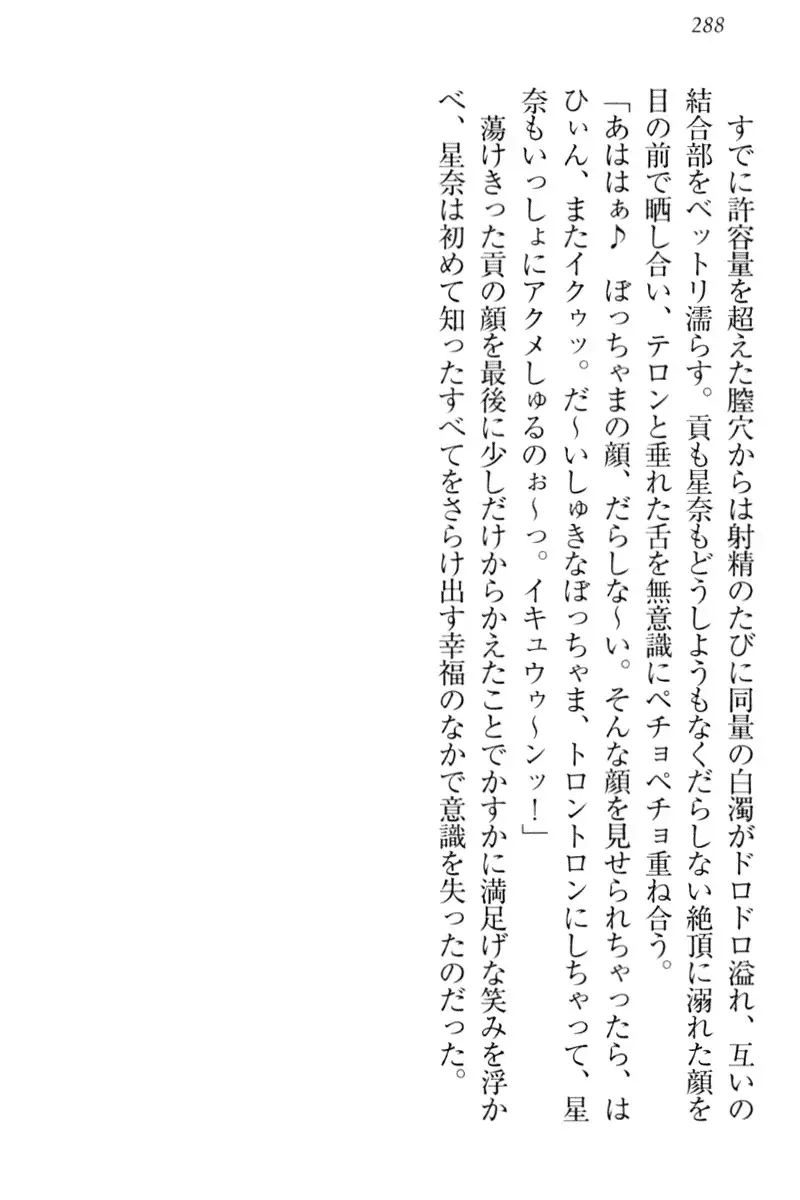 288
すでに許容量を超えた膣穴からは射精のたびに同量の白濁がドロドロ溢れ、互いの
結合部をベットリ濡らす。貢も星奈もどうしようもなくだらしない絶頂に溺れた顔を
目の前で晒し合い、テロンと垂れた舌を無意識にペチョペチョ重ね合う。
「あははぁ♪　ぼっちゃまの顔、だらしな～い。そんな顔を見せられちゃったら、は
ひぃん、またイクゥッ。だ～いしゅきなぼっちゃま、トロントロンにしちゃって、星
奈もいっしょにアクメしゅるのぉ～っ。イキュウゥ～ンッ！」
蕩けきった貢の顔を最後に少しだけからかえたことでかすかに満足げな笑みを浮か
べ、星奈は初めて知ったすべてをさらけ出す幸福のなかで意識を失ったのだった。